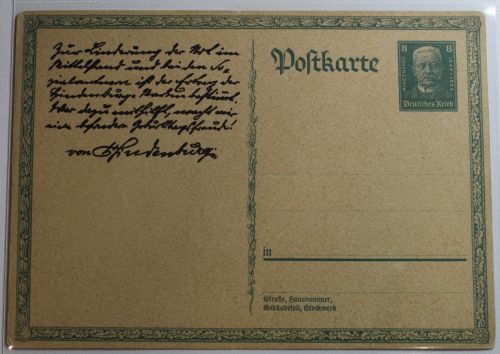 Zur Linderung der Not im
Mittelstand und bei den
ist der Ertrag der
Hindenburg-Marken bestimmt.
Wer dazu mithilft, macht mir
eine besondere Geburtstagsfreude!
von Hindenburg.
Postkarte
8 8
Deutsches Reich
in
Straße, Hausnummer,
Gebäudeteil, Stockwerk